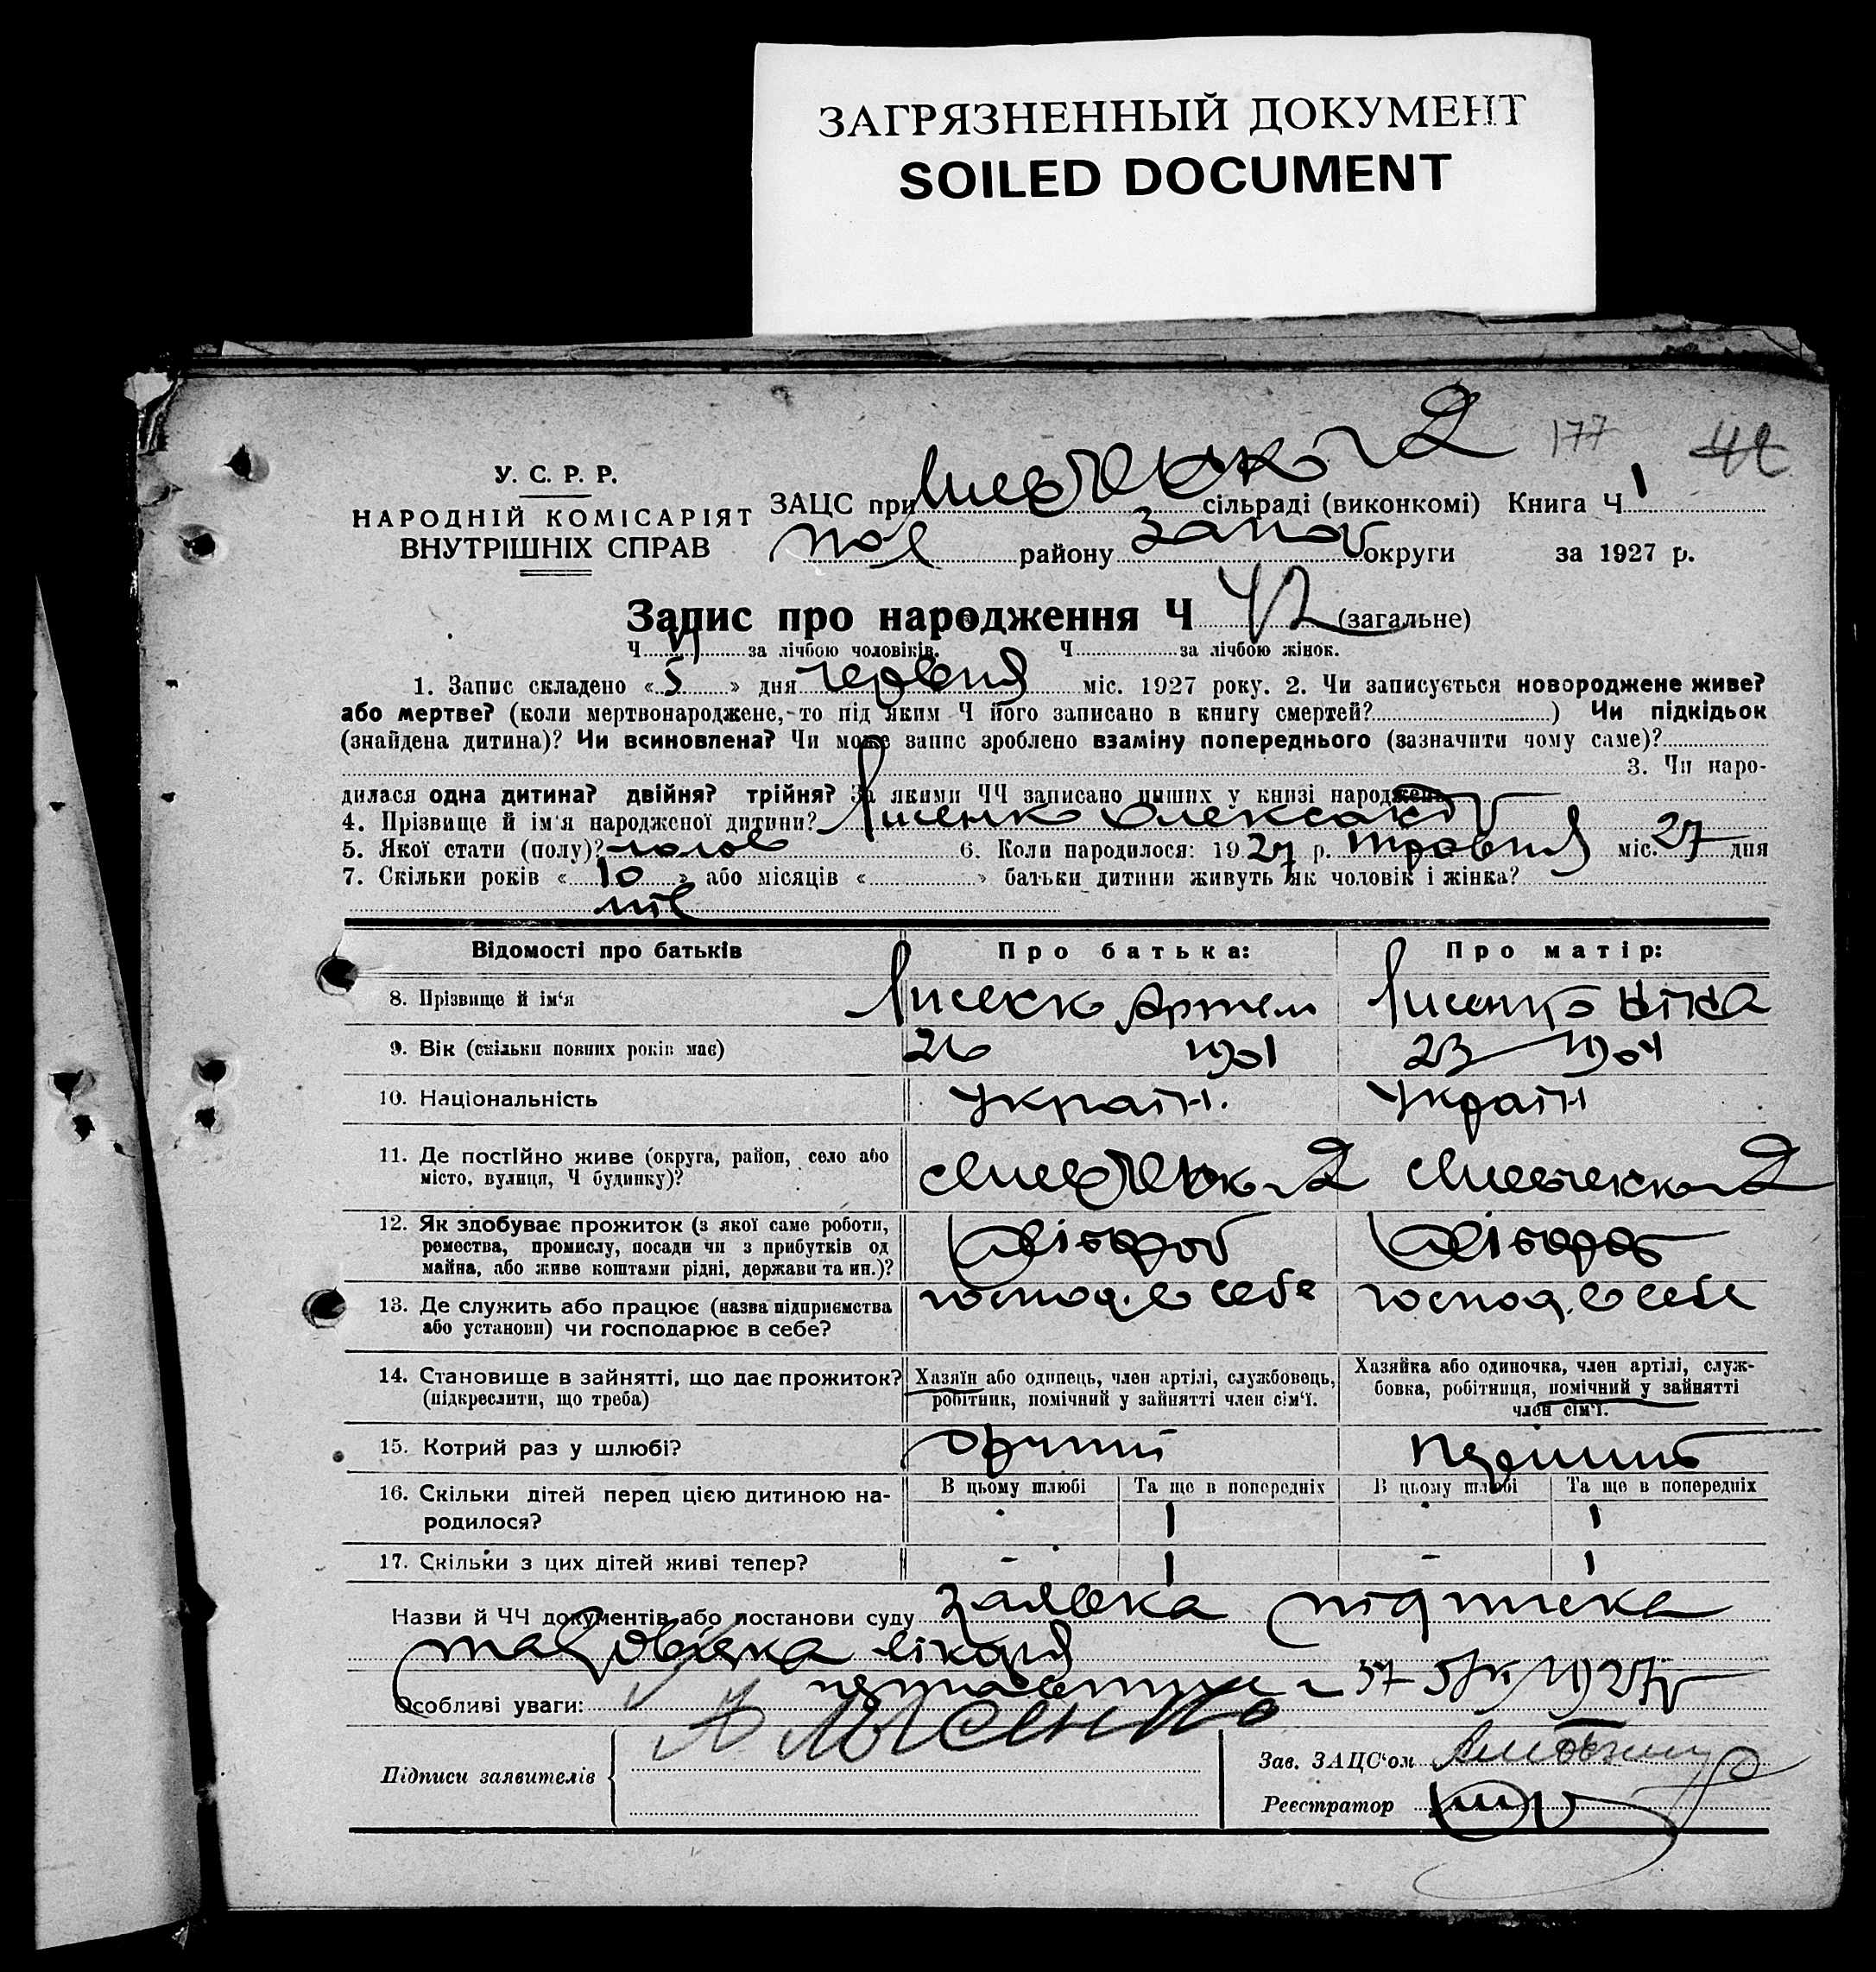 ЗАГРЯЗНЕННЫЙ ДОКУМЕНТ
SOILED DOCUMENT
177
42
У. С. Р. Р.
НАРОДНІЙ КОМІСАРІЯТ
ВНУТРІШНІХ СПРАВ
ЗАЦС при сільраді (виконкомі) Книга Ч 1
району округи за 1927 р.
Запис про народження Ч 42 (загальне)
Ч. за лічбою чоловіків. Ч. за лічбою жінок.
1. Запис складено «5» дня червня міс. 1927 року. 2. Чи записується новороджене живе?
або мертве? (коли мертвонароджене, то під яким Ч його записано в книгу смертей?) Чи підкідьок
(знайдена дитина)? Чи всиновлена? Чи може запис зроблено взаміну попереднього (зазначити чому саме)?
3. Чи наро-
дилася одна дитина? двійня? трійня? За якими ЧЧ записано инших у книзі народжень
4. Прізвище й ім'я народженої дитини? Лисенко Олександ
5. Якої стати (полу)? чолов 6. Коли народилося: 1927 р. травня міс. 27 дня
7. Скільки років «10» або місяців « » батьки дитини живуть як чоловік і жінка?
міс
Відомості про батьків Про батька: Про матір:
8. Прізвище й ім'я Лисенко Артем Лисенко
9. Вік (скільки повних років має) 26 1901 23 1904
10. Національність Україн. Україн
11. Де постійно живе (округа, район, село або
місто, вулиця, Ч будинку)?
12. Як здобуває прожиток (з якої саме роботи,
ремества, промислу, посади чи з прибутків од
майна, або живе коштами рідні, держави та ин.)? хлібороб хлібороб
13. Де служить або працює (назва підприємства
або установи) чи господарює в себе? господ. в себе господ. в себе
14. Становище в зайнятті, що дає прожиток?
(підкреслити, що треба)
Хазяїн або одинець, член артілі, службовець,
робітник, помічний у зайнятті член сім'ї.
Хазяйка або одиночка, член артілі, служ-
бовка, робітниця, помічний у зайнятті
член сім'ї.
15. Котрий раз у шлюбі? другий перший
16. Скільки дітей перед цією дитиною на-
родилося?
В цьому шлюбі Та ще в попередніх В цьому шлюбі Та ще в попередніх
- 1 - 1
17. Скільки з цих дітей живі тепер? - 1 - 1
Назви й ЧЧ документів або постанови суду заявка підписка
та довідка лікаря
Особливі уваги:
А Лысенко
Підписи заявителів
Зав. ЗАЦС'ом
Реєстратор